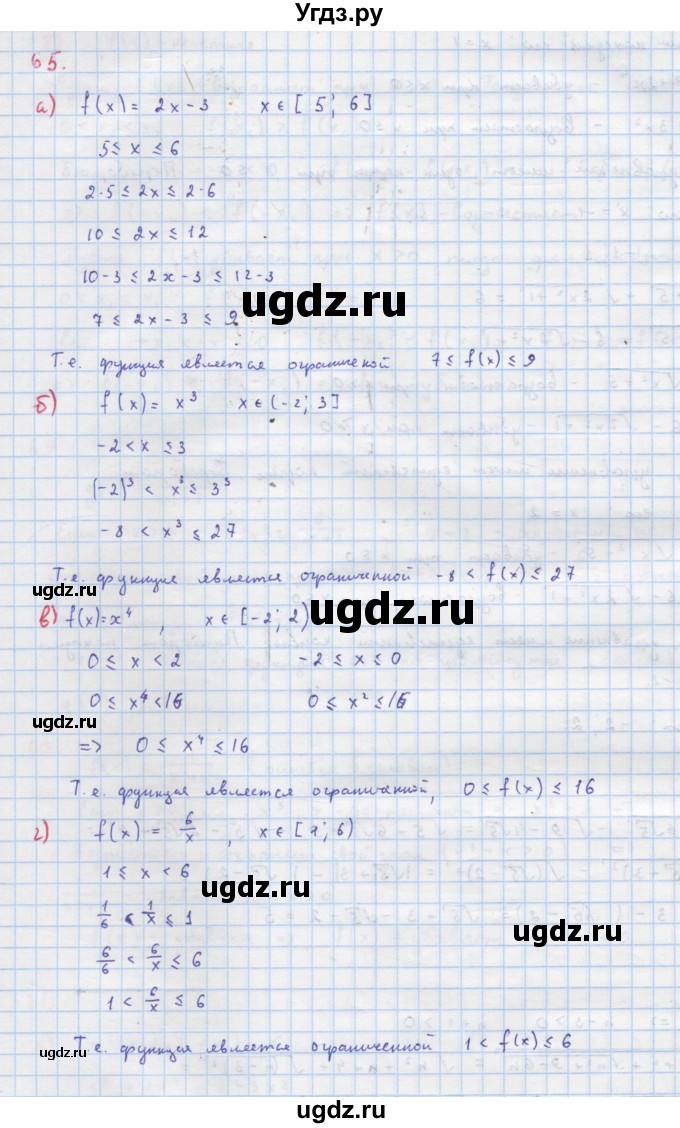 Угдз.ру
65.
а) f(x) = 2x - 3 x ∈ [5; 6]
5 ≤ x ≤ 6
2·5 ≤ 2x ≤ 2·6
10 ≤ 2x ≤ 12
10-3 ≤ 2x-3 ≤ 12-3
7 ≤ 2x-3 ≤ 9
ugdz.ru
Т.е. функция является ограниченой 7 ≤ f(x) ≤ 9
б) f(x) = x³ x ∈ (-2; 3]
-2 < x ≤ 3
(-2)³ < x³ ≤ 3³
-8 < x³ ≤ 27
Т.е. функция является ограниченной -8 < f(x) ≤ 27
ugdz.ru
ugdz.ru
в) f(x) = x⁴, x ∈ [-2; 2)
0 ≤ x < 2 -2 ≤ x ≤ 0
0 ≤ x⁴ < 16 0 ≤ x² ≤ 16
ugdz.ru
=> 0 ≤ x⁴ ≤ 16
Т.е. функция является ограниченной, 0 ≤ f(x) ≤ 16
г) f(x) = 6/x, x ∈ [1; 6)
1 ≤ x < 6
ugdz.ru
1/6 < 1/x ≤ 1
ugdz.ru
6/6 < 6/x ≤ 6
1 < 6/x ≤ 6
Т.е. функция является ограниченной 1 < f(x) ≤ 6
ugdz.ru
ugdz.ru